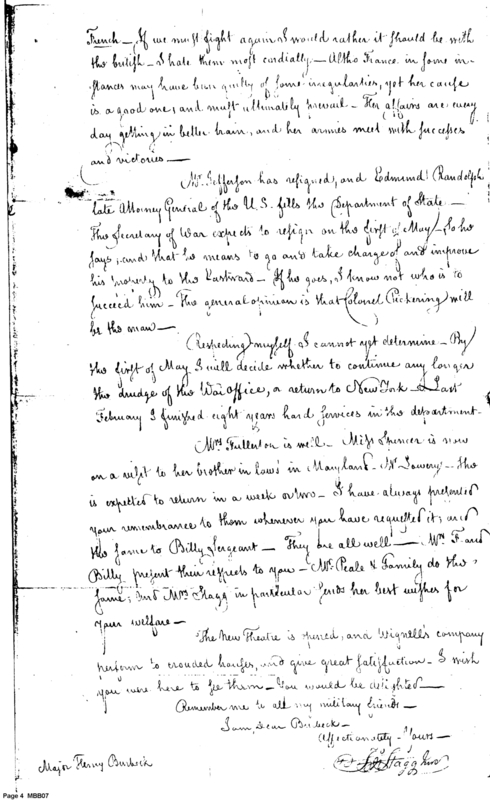 French — If we must fight again I would rather it should be with
the british — I hate them most cordially — Altho France in some in-
stances may have been guilty of some irregularities, yet her cause
is a good one, and must ultimately prevail — Her affairs are every
day getting in better train, and her armies meet with successes
and victories —
Mr. Jefferson has resigned, and Edmund Randolph
late Attorney General of the U.S. fills the Department of State —
The Secretary of War expects to resign on the first of May, so he
says, and that he means to go and take charge of and improve
his property to the Eastward — If he goes, I know not who is to
succeed him — The general opinion is that Colonel Pickering will
be the man —
Respecting myself I cannot yet determine — By
the first of May I will decide whether to continue any longer
the drudge of the War office, or return to New York — Last
February I finished eight years hard services in the department —
Mrs Fullerton is well — Miss Spencer is now
on a visit to her brother in laws in Maryland — Mr Lowery — She
is expected to return in a week or two — I have always presented
your remembrance to them whenever you have requested it, and
the same to Billy Sergeant — They are all well — Mrs F. and
Billy present their respects to you — Mr. Peale & Family do the
same; and Mrs Stagg in particular sends her best wishes for
your welfare —
The New Theatre is opened, and Wignell's company
perform to crouded houses, and give great satisfaction — I wish
you were here to see them — You would be delighted —
Remember me to all my military friends —
I am, Dear Burbeck —
Affectionately — Yours —
Jno Stagg Junr
Major Henry Burbeck
Page 4 MBB07